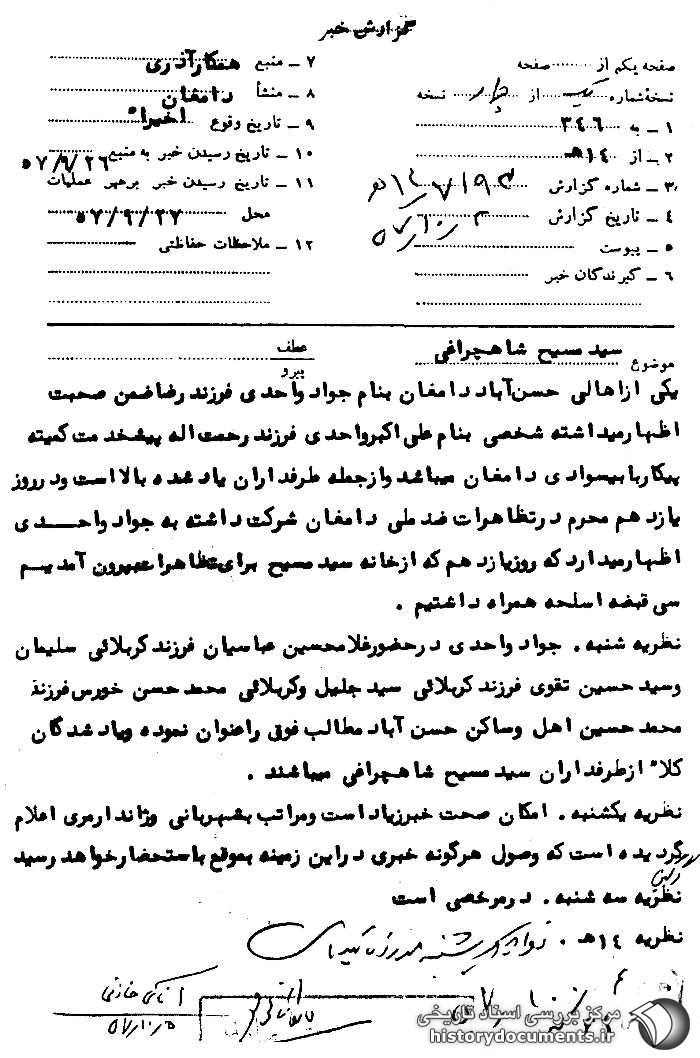 گزارش خبر
صفحه یکم از ........ صفحه
نسخه شماره یک از چهار نسخه
۱ ـ به ۳٤٦
۲ ـ از ۱٤هـ
۳ ـ شماره گزارش
٤ ـ تاریخ گزارش
۵ ـ پیوست
٦ ـ گیرندگان خبر
۷ ـ منبع همکار آذری
۸ ـ منشأ دامغان
۹ ـ تاریخ وقوع اخیراً
۱۰ ـ تاریخ رسیدن خبر به منبع ۵۷/۹/۲٦
۱۱ ـ تاریخ رسیدن خبر برهبر عملیات
محل ۵۷/۹/۲۷
۱۲ ـ ملاحظات حفاظتی
موضوع سید مسیح شاهچراغی
عطف
پیرو
یکی ازاهالی حسن‌آباد دامغان بنام جواد واحدی فرزند رضا ضمن صحبت
اظهارمیداشته شخصی بنام علی اکبرواحدی فرزند رحمت اله پیشخدمت کمیته
پیکاربابیسوادی دامغان میباشد وازجمله طرفداران یاد شده بالا است ودرروز
یازدهم محرم درتظاهرات ضد ملی دامغان شرکت داشته به جواد واحدی
اظهارمیدارد که روزیازدهم که ازخانه سید مسیح برای تظاهرات بیرون آمدیم
سی قبضه اسلحه همراه داشتیم .
نظریه شنبه . جواد واحدی درحضورغلامحسین عباسیان فرزند کربلائی سلیمان
وسید حسین تقوی فرزند کربلائی سید جلیل وکربلائی محمد حسن خورس فرزند
محمد حسین اهل وساکن حسن آباد مطالب فوق راعنوان نموده ویاد شدگان
کلاً ازطرفداران سید مسیح شاهچراغی میباشند .
نظریه یکشنبه . امکان صحت خبرزیاد است ومراتب بشهربانی وژاندارمری اعلام
گردیده است که وصول هرگونه خبری دراین زمینه بموقع باستحضارخواهد رسید
نظریه سه شنبه . درمرخصی است
نظریه ۱٤هـ .
مرکز بررسی اسناد تاریخی
historydocuments.ir